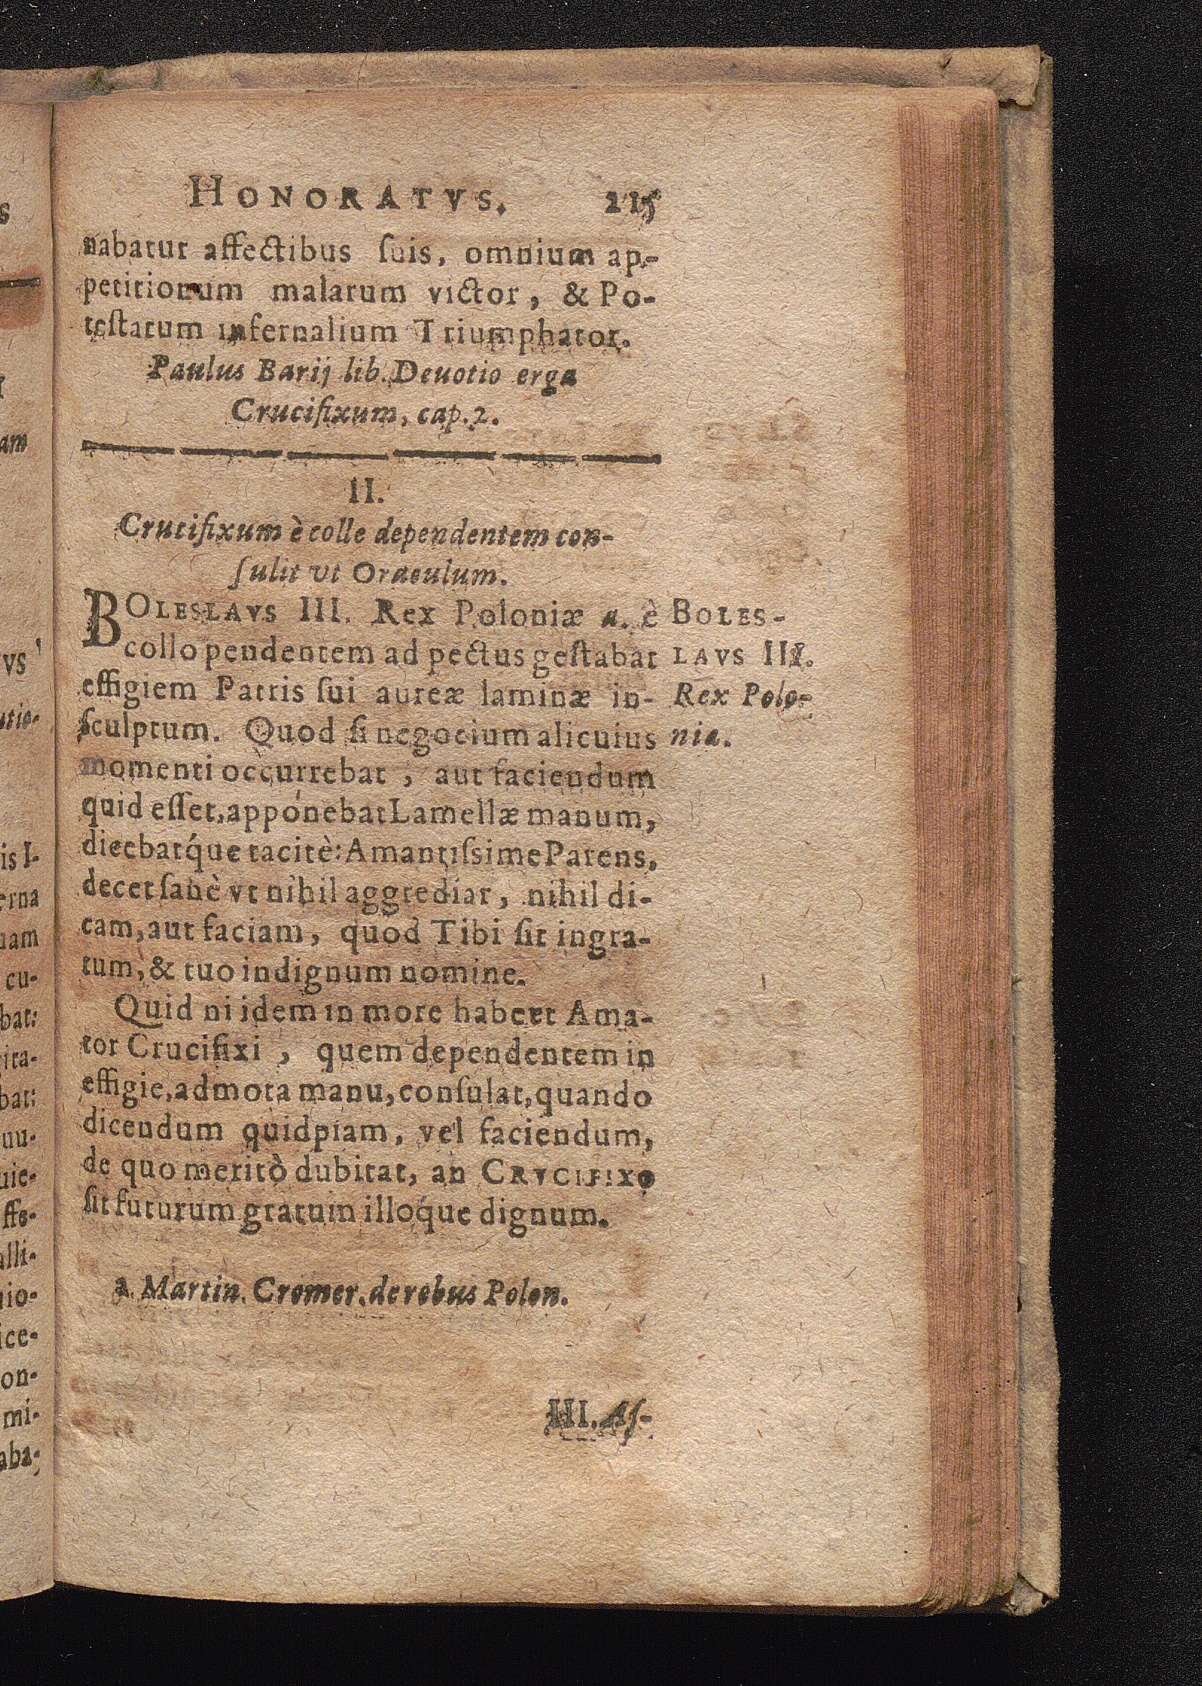 HONORATVS. 215
nabatur affectibus ſuis, omnium ap-
petitionum malarum victor, & Po-
teſtatum infernalium Triumphator.
Paulus Barij lib. Deuotio erga
Crucifixum, cap. 2.
II.
Crucifixum è colle dependentem con-
ſulit vt Oraculum.
BOLESLAVS III. Rex Poloniæ a. è
collo pendentem ad pectus geſtabat
effigiem Patris ſui aureæ laminæ in-
ſculptum. Quod ſi negocium alicuius
momenti occurrebat, aut faciendum
quid eſſet, apponebat Lamellæ manum,
dicebatq́ue tacitè: Amantiſsime Parens,
decet ſanè vt nihil aggrediar, nihil di-
cam, aut faciam, quod Tibi ſit ingra-
tum, & tuo indignum nomine.
Quid ni idem in more habeat Ama-
tor Crucifixi, quem dependentem in
effigie, admota manu, conſulat, quando
dicendum quidpiam, vel faciendum,
de quo meritò dubitat, an CRVCIFIXO
ſit futurum gratum illoq́ue dignum.
a Martin. Cromer. de rebus Polon.
III. Aſ-
BOLES-
LAVS III.
Rex Polo-
nia.
s
am
vs
utio-
is I-
erna
uam
cu-
bat:
ita-
bat:
uu-
uie-
ffe-
alli-
nio-
ice-
on-
mi-
aba-